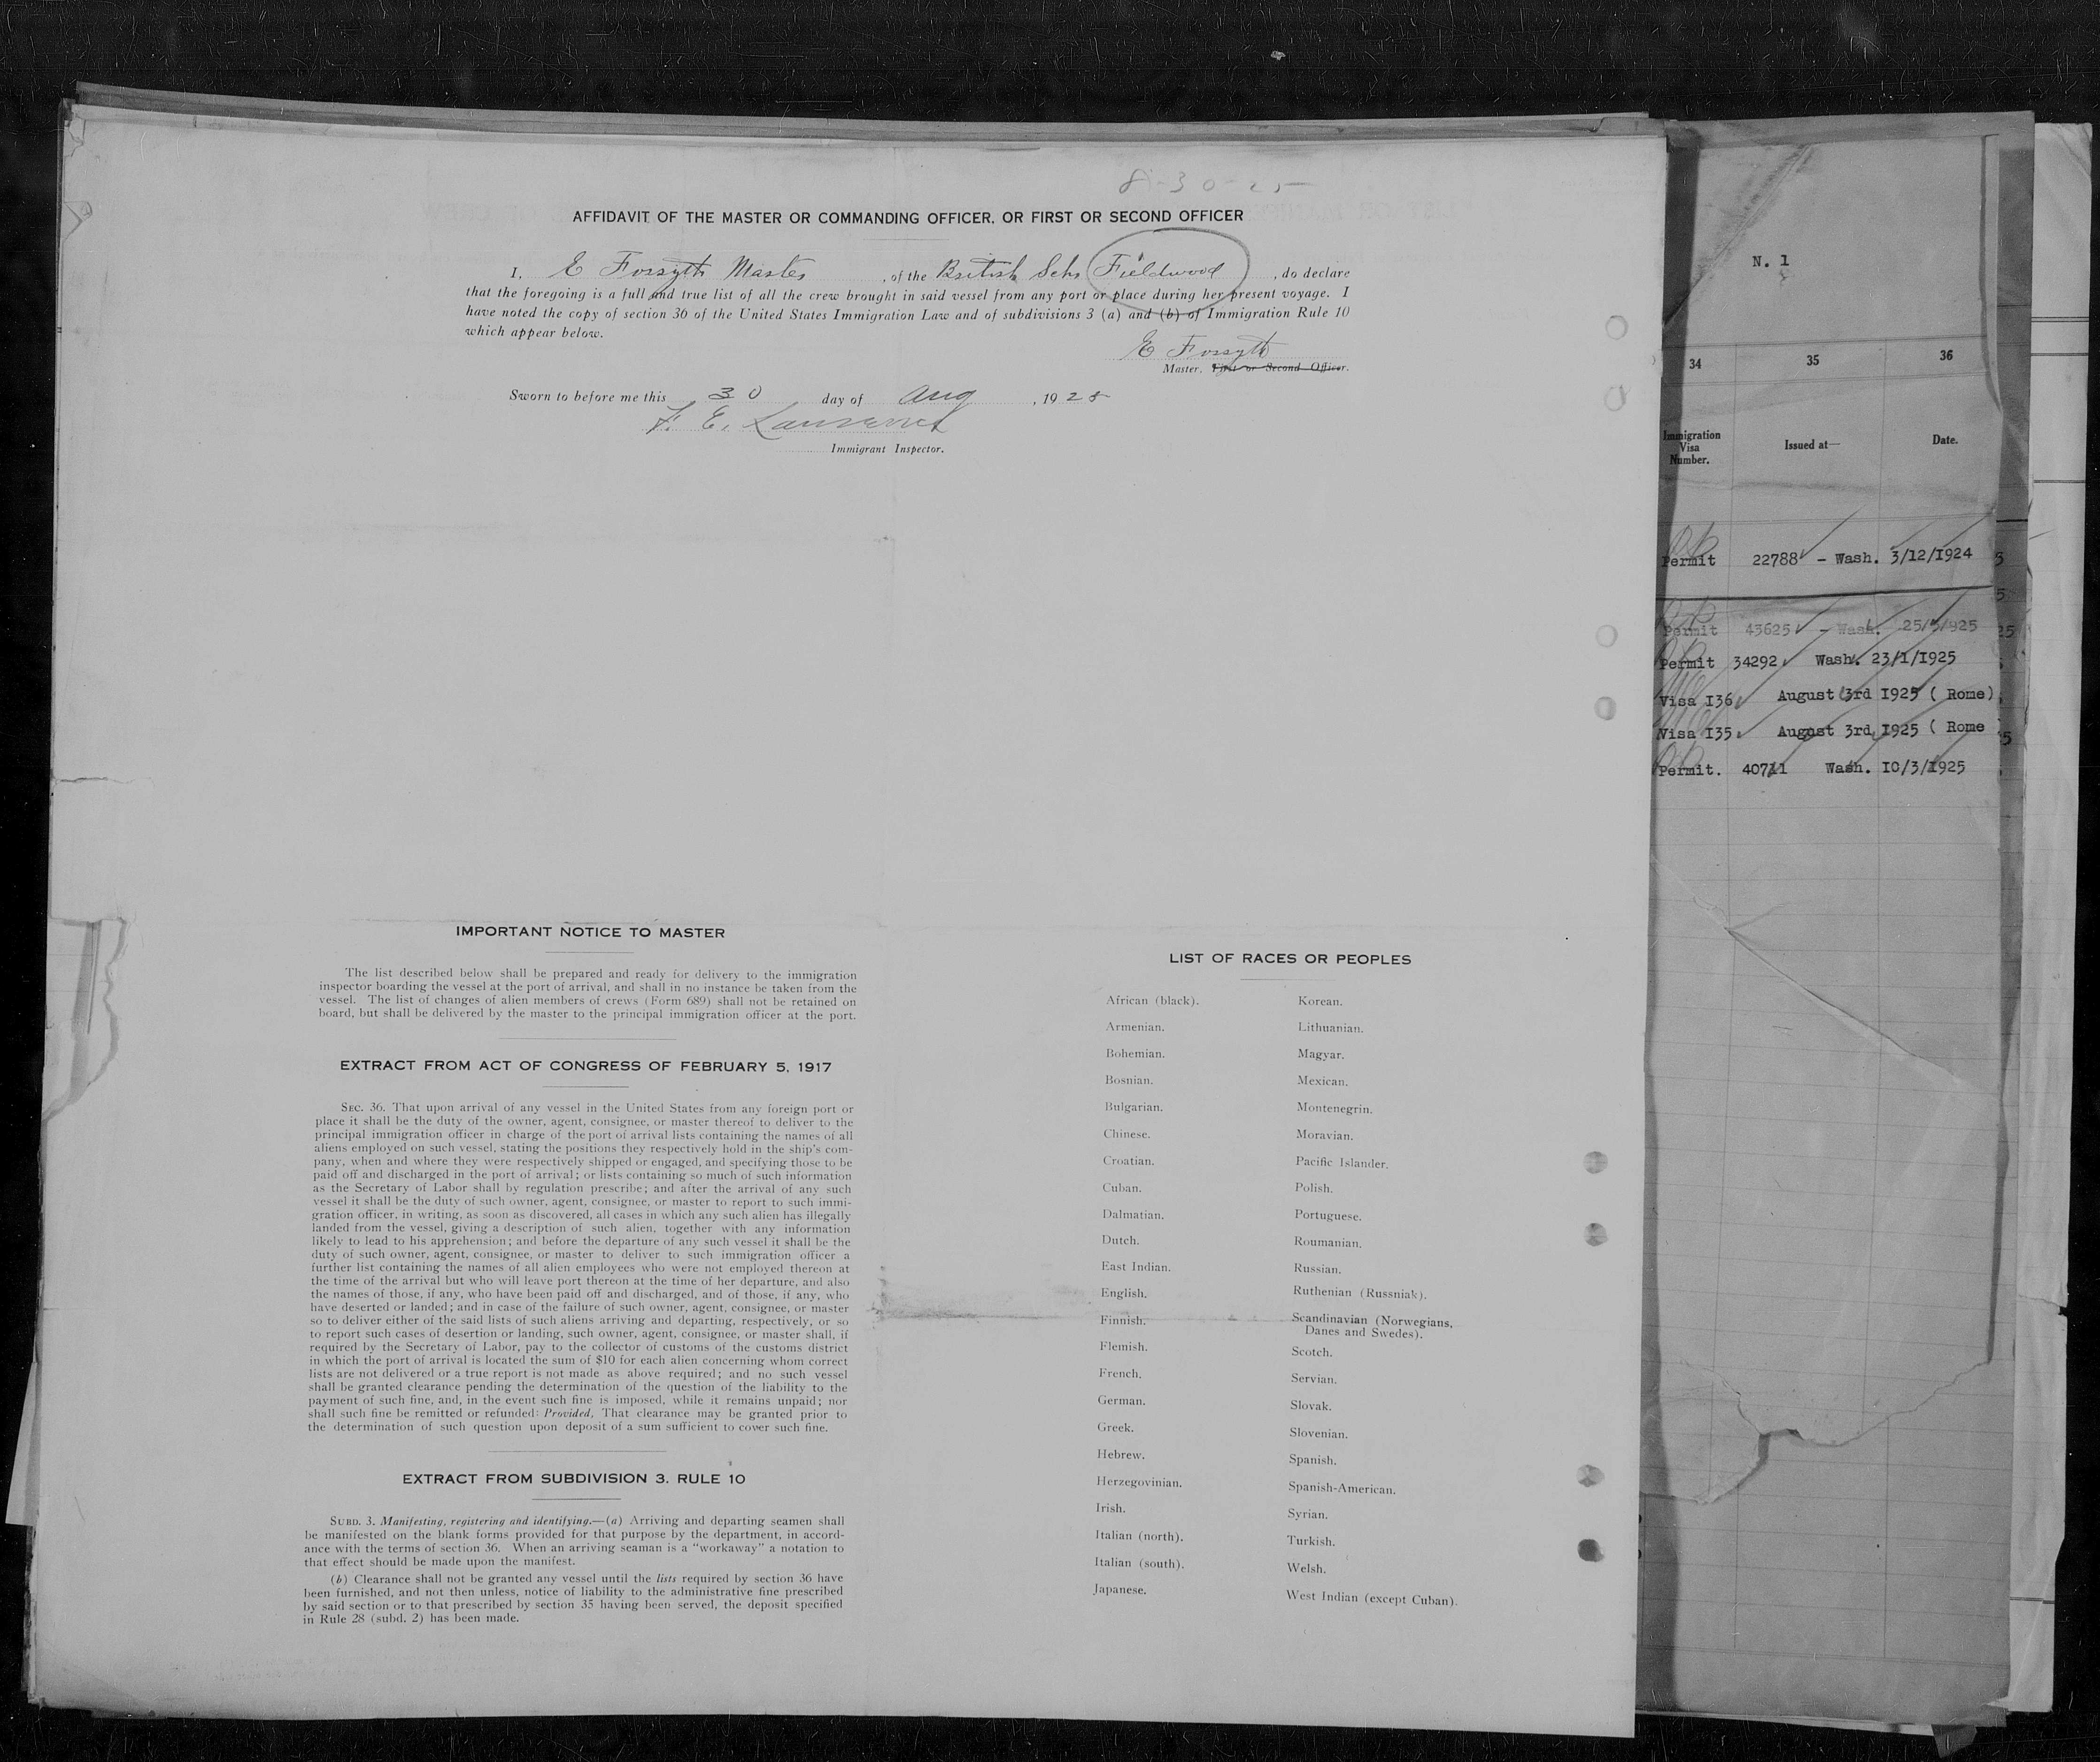 8-30-25
AFFIDAVIT OF THE MASTER OR COMMANDING OFFICER, OR FIRST OR SECOND OFFICER
I, E Forsyth Master, of the British Schr Fieldwood, do declare
that the foregoing is a full and true list of all the crew brought in said vessel from any port or place during her present voyage. I
have noted the copy of section 36 of the United States Immigration Law and of subdivisions 3 (a) and (b) of Immigration Rule 10
which appear below.
E Forsyth
Master. First or Second Officer.
Sworn to before me this 30 day of Aug, 1925
F. E. Lawrence
Immigrant Inspector.
IMPORTANT NOTICE TO MASTER
The list described below shall be prepared and ready for delivery to the immigration
inspector boarding the vessel at the port of arrival, and shall in no instance be taken from the
vessel. The list of changes of alien members of crews (Form 689) shall not be retained on
board, but shall be delivered by the master to the principal immigration officer at the port.
EXTRACT FROM ACT OF CONGRESS OF FEBRUARY 5, 1917
SEC. 36. That upon arrival of any vessel in the United States from any foreign port or
place it shall be the duty of the owner, agent, consignee, or master thereof to deliver to the
principal immigration officer in charge of the port of arrival lists containing the names of all
aliens employed on such vessel, stating the positions they respectively hold in the ship's com-
pany, when and where they were respectively shipped or engaged, and specifying those to be
paid off and discharged in the port of arrival; or lists containing so much of such information
as the Secretary of Labor shall by regulation prescribe; and after the arrival of any such
vessel it shall be the duty of such owner, agent, consignee, or master to report to such immi-
gration officer, in writing, as soon as discovered, all cases in which any such alien has illegally
landed from the vessel, giving a description of such alien, together with any information
likely to lead to his apprehension; and before the departure of any such vessel it shall be the
duty of such owner, agent, consignee, or master to deliver to such immigration officer a
further list containing the names of all alien employees who were not employed thereon at
the time of the arrival but who will leave port thereon at the time of her departure, and also
the names of those, if any, who have been paid off and discharged, and of those, if any, who
have deserted or landed; and in case of the failure of such owner, agent, consignee, or master
so to deliver either of the said lists of such aliens arriving and departing, respectively, or so
to report such cases of desertion or landing, such owner, agent, consignee, or master shall, if
required by the Secretary of Labor, pay to the collector of customs of the customs district
in which the port of arrival is located the sum of $10 for each alien concerning whom correct
lists are not delivered or a true report is not made as above required; and no such vessel
shall be granted clearance pending the determination of the question of the liability to the
payment of such fine, and, in the event such fine is imposed, while it remains unpaid; nor
shall such fine be remitted or refunded: Provided, That clearance may be granted prior to
the determination of such question upon deposit of a sum sufficient to cover such fine.
EXTRACT FROM SUBDIVISION 3, RULE 10
SUBD. 3. Manifesting, registering and identifying.—(a) Arriving and departing seamen shall
be manifested on the blank forms provided for that purpose by the department, in accord-
ance with the terms of section 36. When an arriving seaman is a "workaway" a notation to
that effect should be made upon the manifest.
(b) Clearance shall not be granted any vessel until the lists required by section 36 have
been furnished, and not then unless, notice of liability to the administrative fine prescribed
by said section or to that prescribed by section 35 having been served, the deposit specified
in Rule 28 (subd. 2) has been made.
LIST OF RACES OR PEOPLES
African (black).
Armenian.
Bohemian.
Bosnian.
Bulgarian.
Chinese.
Croatian.
Cuban.
Dalmatian.
Dutch.
East Indian.
English.
Finnish.
Flemish.
French.
German.
Greek.
Hebrew.
Herzegovinian.
Irish.
Italian (north).
Italian (south).
Japanese.
Korean.
Lithuanian.
Magyar.
Mexican.
Montenegrin.
Moravian.
Pacific Islander.
Polish.
Portuguese.
Roumanian.
Russian.
Ruthenian (Russniak).
Scandinavian (Norwegians,
Danes and Swedes).
Scotch.
Servian.
Slovak.
Slovenian.
Spanish.
Spanish-American.
Syrian.
Turkish.
Welsh.
West Indian (except Cuban).
N. 1
34 35 36
Immigration
Visa
Number.
Issued at—
Date.
Permit 22788 - Wash. 3/12/1924
Permit 43625 - Wash. 25/5/925
Permit 34292 Wash. 23/1/1925
Visa I36 August 3rd 1925 ( Rome)
Visa I35 August 3rd 1925 ( Rome
Permit. 40711 Wash. IO/3/1925